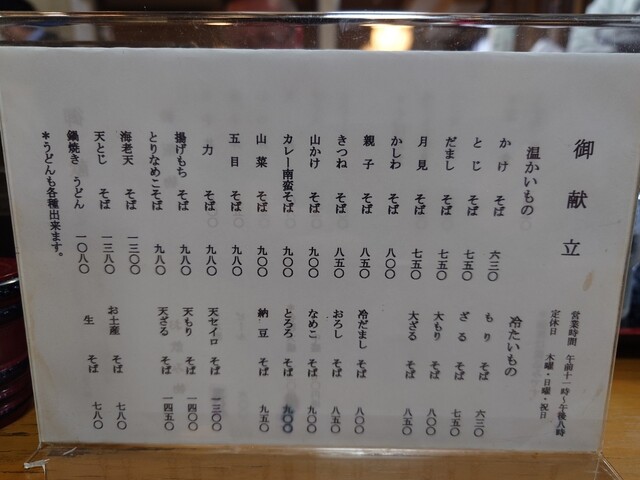 御献立
営業時間 午前十一時〜午後八時
定休日 木曜・日曜・祝日
温かいもの
かけ そば 六三〇
とじ そば 七五〇
だまし そば 七五〇
月見 そば 七五〇
かしわ そば 八〇〇
親子 そば 八五〇
きつね そば 八五〇
山かけ そば 九〇〇
カレー南蛮そば 九〇〇
山菜 そば 九〇〇
五目 そば 九八〇
力 そば 九八〇
揚げもち そば 九八〇
とりなめこそば 九八〇
海老天 そば 一三〇〇
天とじ そば 一三八〇
鍋焼き うどん 一〇八〇
*うどんも各種出来ます。
冷たいもの
もり そば 六三〇
ざる そば 七五〇
大もり そば 八〇〇
大ざる そば 八五〇
冷だまし そば 八〇〇
おろし そば 八五〇
なめこ そば 九〇〇
とろろ そば 九〇〇
納豆 そば 九五〇
天セイロ そば 一三〇〇
天もり そば 一四〇〇
天ざる そば 一四五〇
お土産 そば 七八〇
生 そば 七八〇